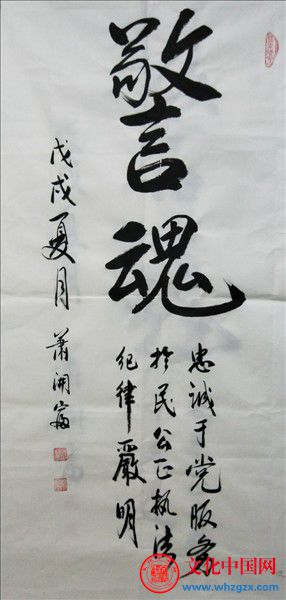 警魂
忠诚于党服务
於民公正执法
纪律嚴明
戊戌夏月
萧开富
文化中国网
www.whzgzx.com